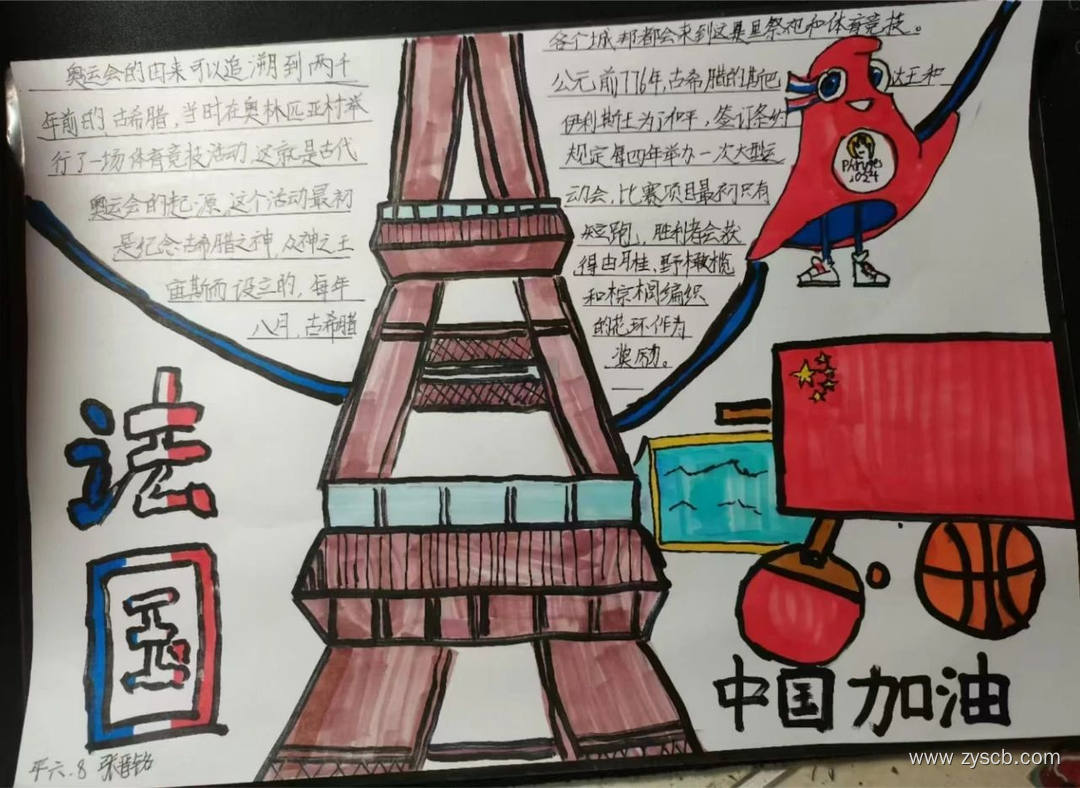 奥运会的由来可以追溯到两千
年前的古希腊,当时在奥林匹亚村举
行了一场体育竞技活动,这就是古代
奥运会的起源,这个活动最初
是纪念古希腊之神,众神之王
宙斯而设立的,每年
八月,古希腊
各个城邦都会来到这里祭祀和体育竞技。
公元前776年,古希腊的斯巴达王和
伊利斯王为了和平,签订条约
规定每四年举办一次大型运
动会,比赛项目最初只有
短跑,胜利者会获
得由月桂、野橄榄
和棕榈编织
的花环作为
奖励。
2024
法国
中国加油
六.8
www.zyscb.com